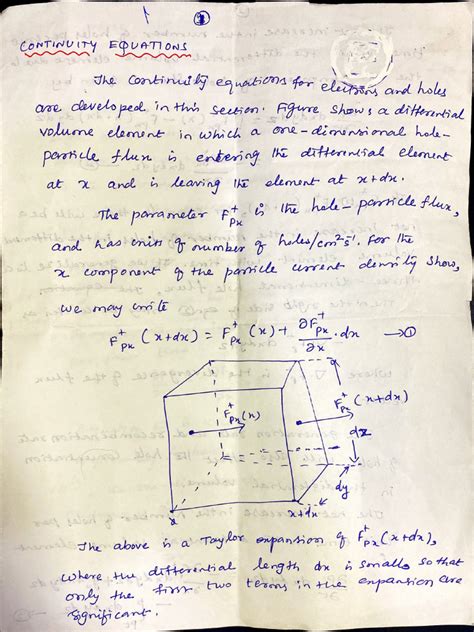 ②
CONTINUITY EQUATIONS
The Continuity equations for electrons and holes
are developed in this section. Figure shows a differential
volume element in which a one-dimensional hole-
particle flux is entering the differential element
at x and is leaving the element at x+dx.
The parameter F⁺px is the hole-particle flux,
and has units of number of holes/cm²s¹. For the
x component of the particle current density shows,
we may write
F⁺px (x+dx) = F⁺px (x) + ∂F⁺px/∂x · dx →①
F⁺px(x)
F⁺px (x+dx)
dz
dy
x
x+dx
The above is a Taylor expansion of F⁺px(x+dx),
where the differential length dx is small, so that
only the first two terms in the expansion are
significant.